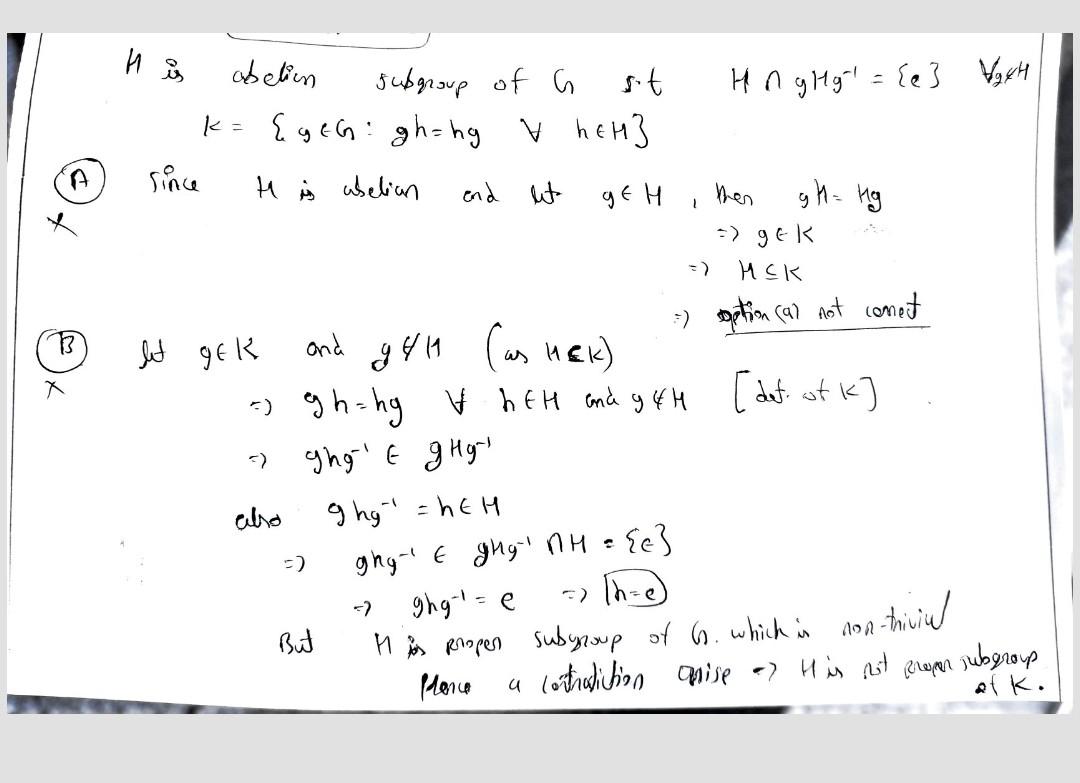 H is abelian subgroup of G s.t H ∩ gHg⁻¹ = {e} ∀g∉H
K = {g∈G : gh=hg ∀ h∈H}
(A) Since H is abelian and let g∈H, then gH = Hg
x
=> g∈K
=> H⊆K
=> option (a) not correct
(B) let g∈K and g∉H (as H⊆K)
x
=> gh=hg ∀ h∈H and g∉H [def. of K]
=> ghg⁻¹ ∈ gHg⁻¹
also ghg⁻¹ = h∈H
=> ghg⁻¹ ∈ gHg⁻¹ ∩ H = {e}
=> ghg⁻¹ = e => h=e
But H is proper subgroup of G. which is non-trivial
Hence a contradiction arise => H is not proper subgroup
of K.